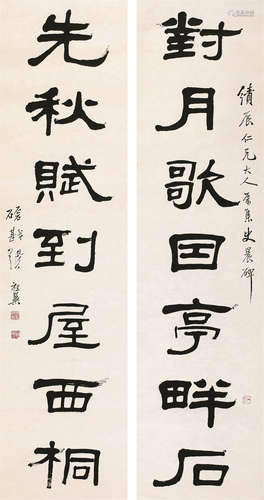 對月歌回亭畔石
績辰仁兄大人屬集史晨碑
先秋賦到屋西桐
祖翼